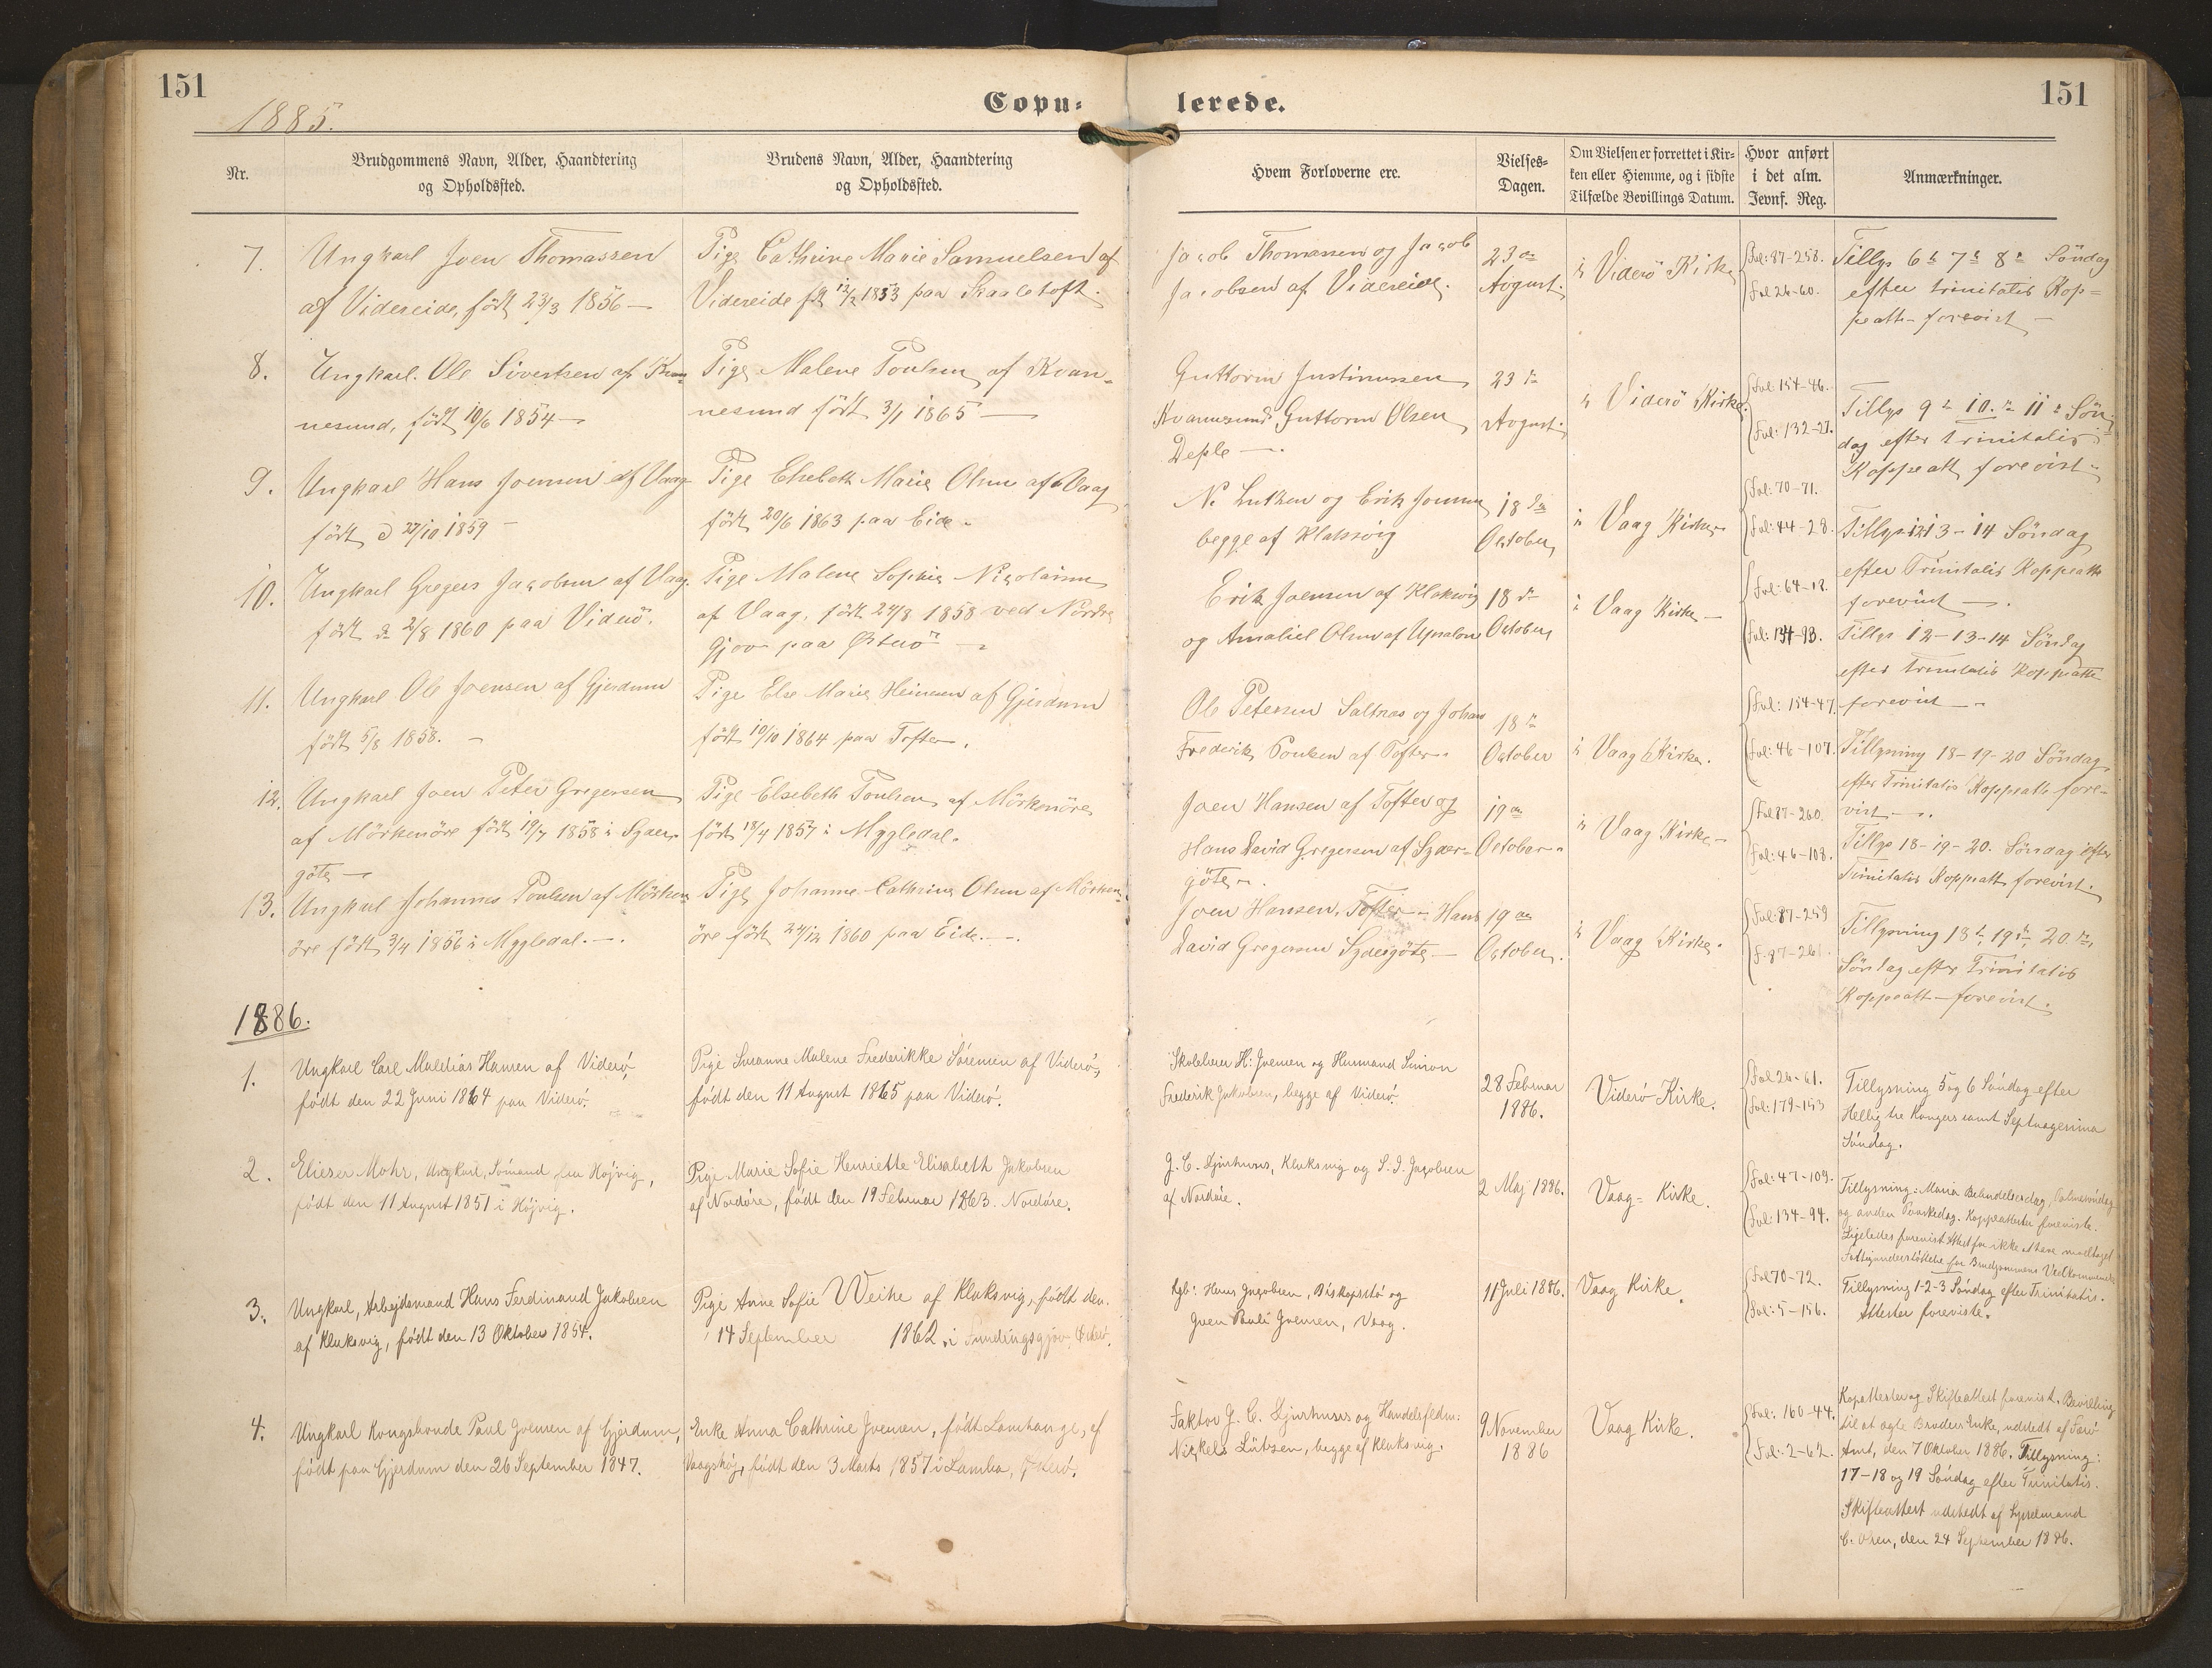 151
1885.
Copu-
lerede.
151
Nr.
Brudgommens Navn, Alder, Haandtering
og Opholdssted.
Brudens Navn, Alder, Haandtering
og Opholdssted.
Hvem Forloverne ere.
Vielses-
Dagen.
Om Vielsen er forrettet i Kir-
ken eller Hjemme, og i sidste
Tilfælde Bevillings Datum.
Hvor anført
i det alm.
Jevnf. Reg.
Anmærkninger.
7.
Ungkarl Joen Thomassen
af Videreide, født 23/3 1856 —
Pige Cathrine Marie Samuelsen af
Videreide 12/2 1853 paa Skaaletoft.
Jacob Thomassen og Jacob
Jacobsen af Videreide.
23de
Avgust.
i Viderö Kirke
Fol: 87-258.
Fol 26-60.
Tillys 6te 7de 8de Söndag
efter trinitatis Kop=
peatt forevist —
8.
Ungkarl Ole Sivertsen af Kvan-
nesund, født 10/6 1854 —
Pige Malene Poulsen af Kvan-
nesund født 3/1 1865 —
Guttorm Justinussen
Kvannesund Guttorm Olsen
Deple —.
23de
Avgust.
i Viderö Kirke.
Fol: 154-46.
Fol: 132-27.
Tillys 9de 10.de 11te Sön-
dag efter trinitatis
Koppeatt forevist.
9.
Ungkarl Hans Joensen af Vaag
født d 27/10 1859 —
Pige Elsebeth Marie Olsen af Vaag
født 20/6 1863 paa Eide.
N. Lutzen og Erik Joensen
begge af Klaksvig
18de
October
i Vaag Kirke
Fol: 70-71.
Fol: 44-28.
Tillys 12 13-14 Söndag
efter Trinitatis Koppeatt
forevist —.
10.
Ungkarl Gregers Jacobsen af Vaag
født 2/8 1860 paa Viderö.
Pige Malene Sophie Nicolaisen
af Vaag, født 27/8 1858 ved Nordre
Gjov paa Österö —
Erik Joensen af Klaksvig
og Amaliel Olsen af Upsalon
18de
October
i Vaag Kirke —
Fol: 64-12.
Fol: 134-93.
Tillys 12-13-14 Söndag
efter trinitatis Koppeatt
forevist —
11.
Ungkarl Ole Joensen af Gjerdum
født 5/8 1858. —
Pige Else Marie Heinesen af Gjerdum
født 10/10 1864 paa Tofter.
Ole Petersen Saltnæs og Johan
Frederik Poulsen af Tofter.
18de
October
i Vaag Kirke.
Fol: 154-47.
Fol: 46-107.
Tillysning 18-19-20 Söndag
efter Trinitatis Koppeatt fore-
vist —.
12.
Ungkarl Joen Peter Gregersen
af Mörkenöre født 19/7 1858 i Syder-
göte —
Pige Elsebeth Poulsen af Mörkenöre
født 18/4 1857 i Myggledal.
Joen Hansen af Tofter og
Hans David Gregersen af Syder-
göte —.
19de
October
i Vaag Kirke —
Fol 87-260.
Fol: 46-108.
Tillys 18-19-20. Söndag efter
Trinitatis Koppeatt forevist.
13.
Ungkarl Johannes Poulsen af Mörken
öre født 3/4 1856 i Myggledal. —.
Pige Johanne Cathrine Olsen af Mörken-
öre født 24/12 1860 paa Eide. —.
Joen Hansen, Tofter — Hans
David Gregersen Sydergöte —
19de
October.
i Vaag Kirke.
Fol: 87-259
F. 87-261.
Tillysning 18de, 19de, 20.de
Söndag efter Trinitatis
Koppeatt — forevist.
1886.
1.
Ungkarl Carl Mathias Hansen af Viderö,
født den 22 Juni 1864 paa Viderö.
Pige Susanne Malene Frederikke Sörensen af Viderö,
født den 11 August 1865 paa Viderö.
Skolelærer H: Joensen og Husmand Simon
Frederik Jakobsen, begge af Viderö.
28 Februar
1886.
Viderö Kirke.
Fol 26-61.
Fol: 179-153
Tillysning 5 og 6 Söndag efter
Hellig tre Konger samt Septuagesima
Söndag.
2.
Elieser Mohr, Ungkarl, Sömand fra Höjvig,
født den 11 August 1851 i Höjvig.
Pige Marie Sofie Henriette Elisabeth Jakobsen
af Nordöre, født den 19 Februar 1863. Nordöre.
J. C. Ljirhuus, Klaksvig og S. J. Jacobsen
af Nordöre.
2 Maj 1886.
Vaag= Kirke.
Fol: 47-109.
Fol: 134-94.
Tillysning: Maria Bebudelsesdag, Palmesöndag
og anden Paaskedag. Koppeattester foreviste.
Ligeledes forevist Attest for ikke at have modtaget
Fattigunderstöttelse for Brudgommens Vedkommende
3.
Ungkarl, Arbejdsmand Hans Ferdinand Jakobsen
af Klaksvig, født den 13 Oktober 1854.
Pige Anne Sofie Weihe af Klaksvig, født den
14 September 1862 i Fundingsgjov, Österö.
Kgb: Hans Jacobsen, Biskopstö og
Joen Pauli Joensen, Vaag.
11 Juli 1886.
Vaag Kirke.
Fol 70-72.
Fol: 5-156.
Tillysning 1-2-3 Söndag efter Trinitatis.
Attester foreviste.
4.
Ungkarl Kongsbonde Paul Joensen af Gjerdum,
født paa Gjerdum den 26 September 1847.
Enke Anna Cathrine Joensen, født Lamhauge, af
Vaagshöj, født den 3 Marts 1857 i Lamba, Österö.
Faktor J. C. Ljirhuus og Handelsfldm:
Nickels Lützen, begge af Klaksvig.
9 November
1886
Vaag Kirke.
Fol: 160-44.
Fol: 2-62.
Kopattester og Skifteattest forevist. Bevilling
til at ægte Broders Enke, udstedt af Færö
Amt, den 7 Oktober 1886. Tillysning:
17-18 og 19 Söndag efter Trinitatis.
Skifteattest udstedt af Sysselmand
C. Olsen, den 24 September 1886.